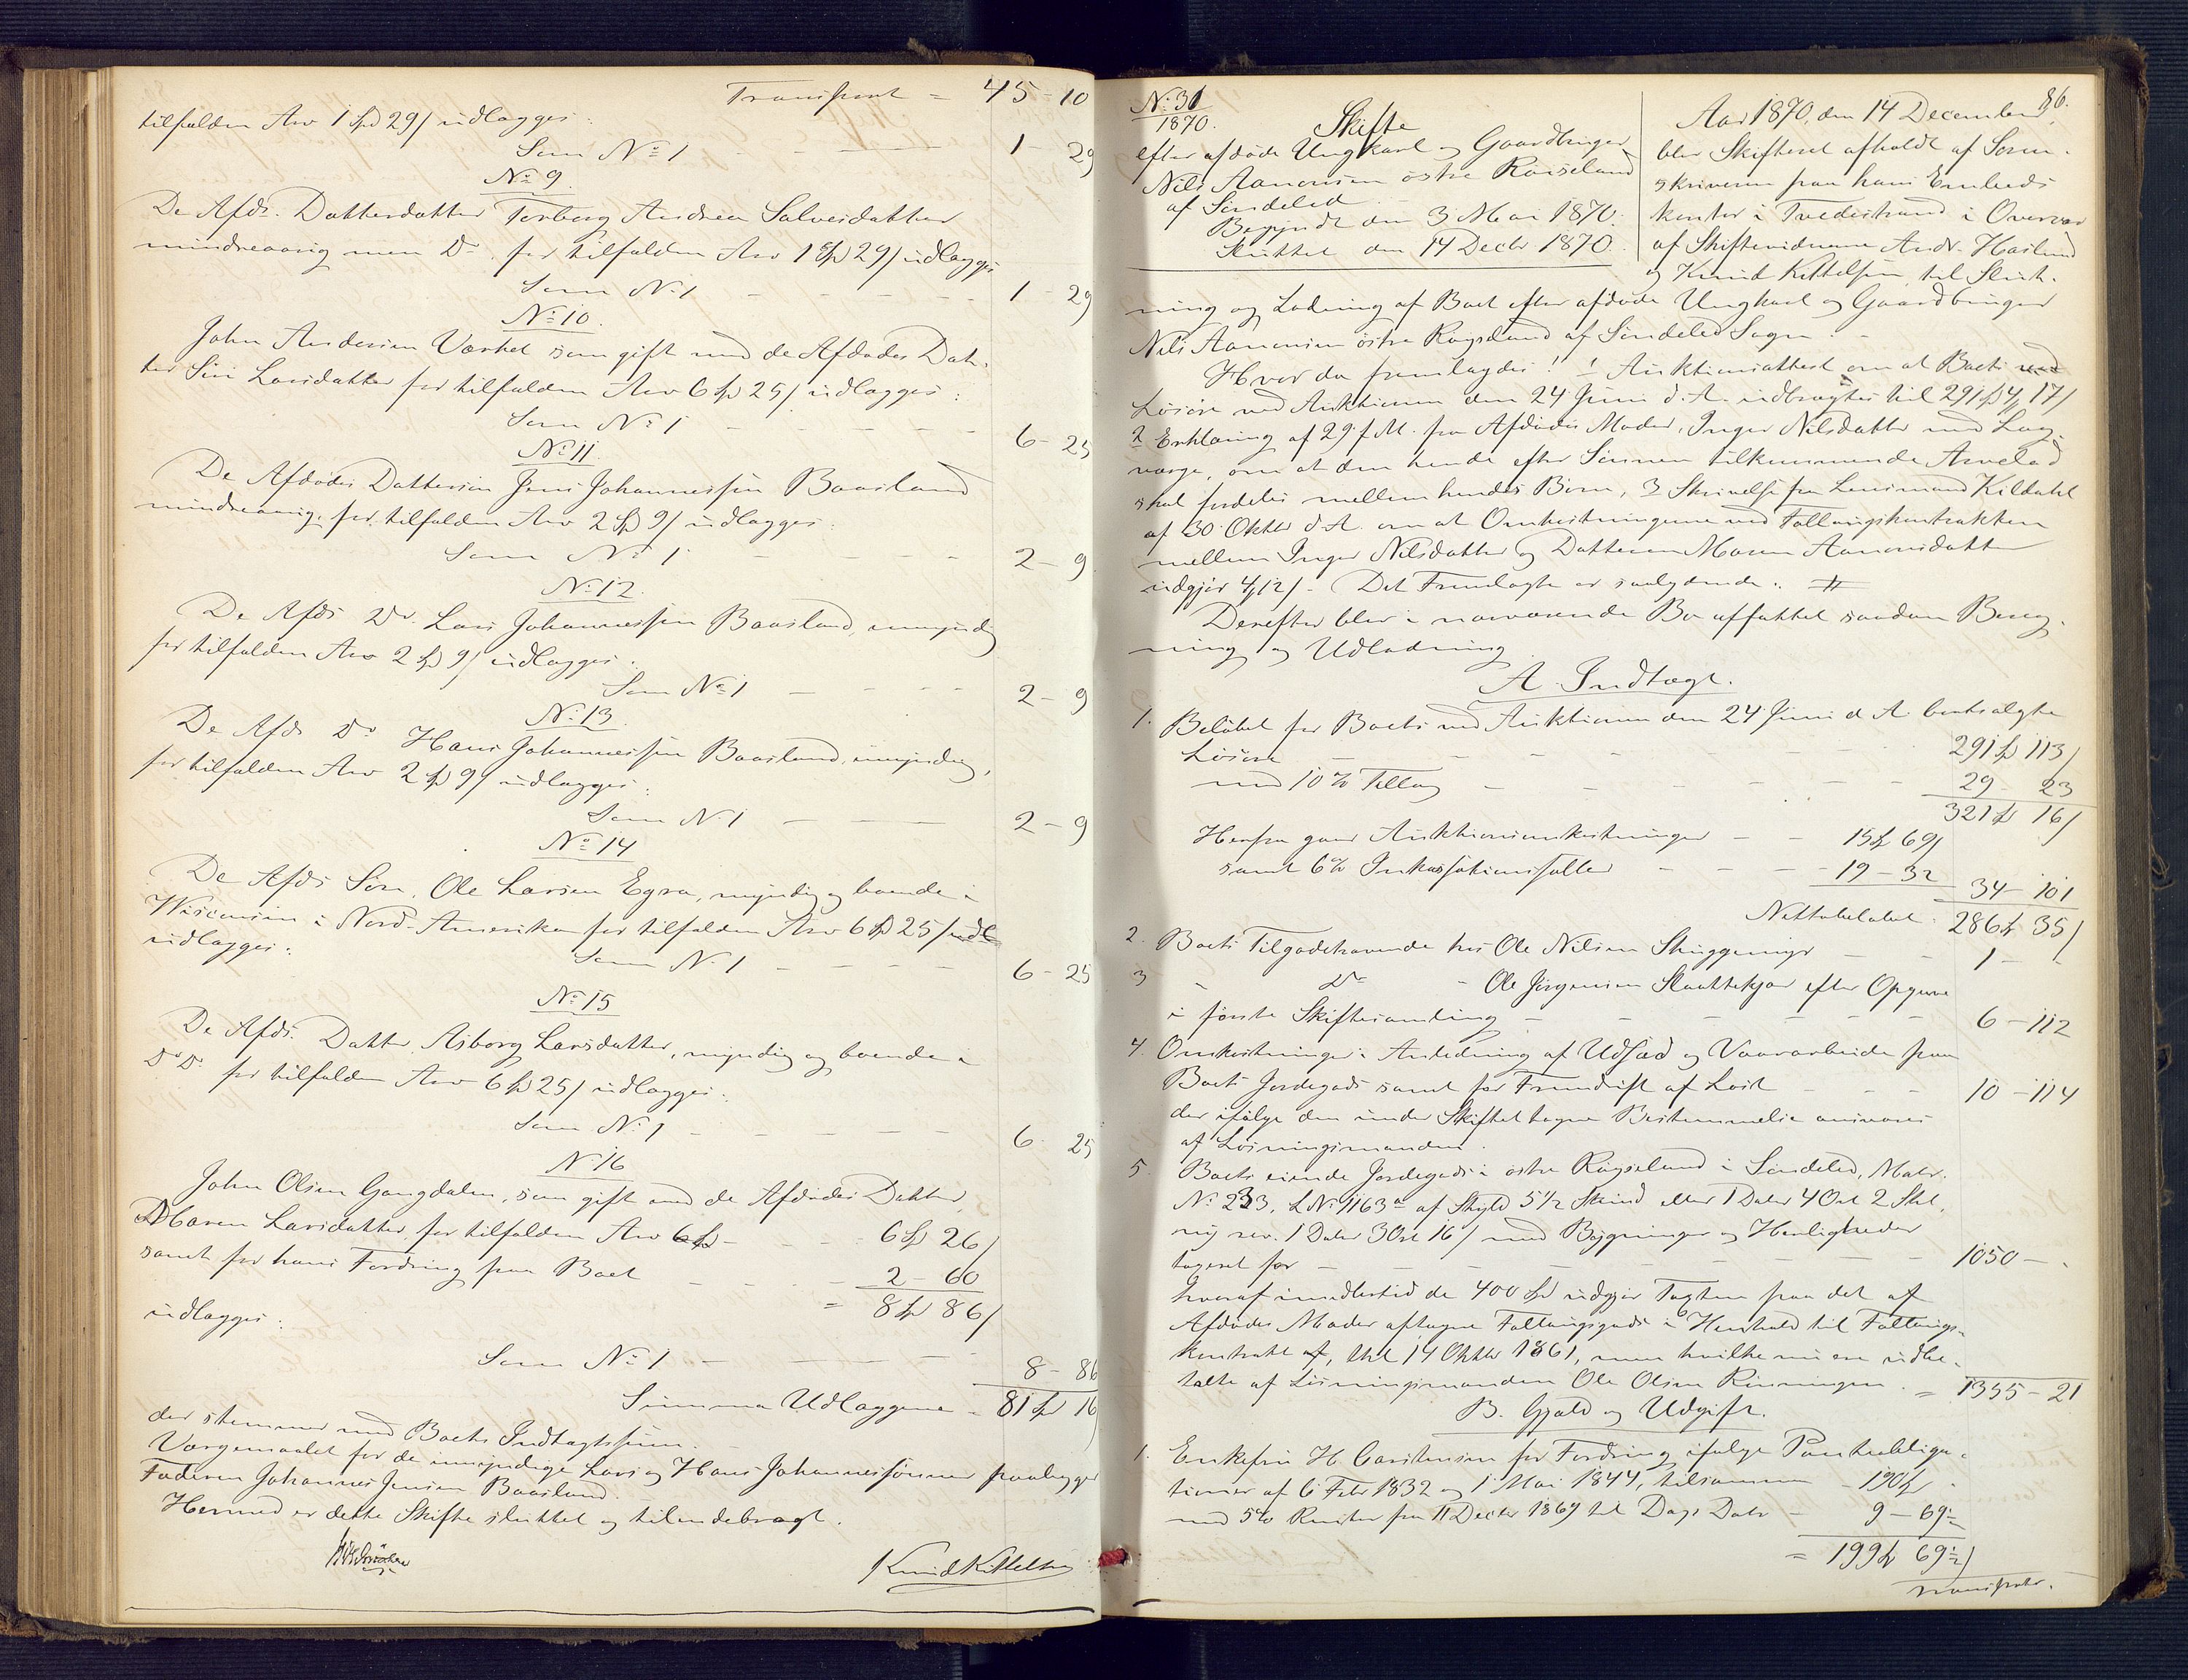 Transport = 45-10
tilfalden Arv 1 Spd 29 s udlægges:
Sum No 1 - 1 - 29
No 9.
De Afds. Datterdatter Torborg Andrea Salvesdatter
mindreaarig men Do. for tilfalden Arv 1 Spd 29 s udlægges
Sum No 1 - 1 - 29
No 10.
John Andersen Værket som gift med de Afdødes Dat-
ter Siri Larsdatter for tilfalden Arv 6 Spd 25 s udlægges:
Sum No 1 - 6 - 25
No 11.
De Afdødes Dattersøn Jens Johannessen Baasland
mindreaarig, for tilfalden Arv 2 Spd 9 s udlægges:
Sum No 1 - 2 - 9
No 12.
De Afds Do. Lars Johannessen Baasland, umyndig
for tilfalden Arv 2 Spd 9 s udlægges:
Sum No 1 - 2 - 9
No 13.
De Afds Do Hans Johannessen Baasland, umyndig,
for tilfalden Arv 2 Spd 9 s udlægges:
Sum No 1 - 2 - 9
No 14
De Afds Søn, Ole Larsen Egra, myndig og boende i
Wisconsin i Nord-Amerika for tilfalden Arv 6 Spd 25 s udl
udlægges:
Sum No 1 - 6 - 25
No 15
De Afds. Datter Asborg Larsdatter, myndig og boende i
Do Do. for tilfalden Arv 6 Spd 25 s udlægges:
Sum No 1 - 6 - 25
No 16
John Olsen Gangdalen, som gift med de Afdødes Datter,
Maren Larsdatter for tilfalden Arv 6 Spd - 6 Spd 26 s
samt for hans Fordring paa Boet - 2 - 60
= 8 Spd 86 s
udlægges:
Sum No 1 - 8 - 86
Summa Udlæggene = 81 Spd 16 s
der stemmer med Boets Indtægtssum.
Værgemaalet for de umyndige Lars og Hans Johannessønner paaligger
Faderen Johannes Jensen Baasland.
Hermed er dette Skifte sluttet og tilendebragt.
Knud Kittelsen
86.
No 31
1870.
Skifte
efter afdøde Ungkarl og Gaardbruger
Nils Aanonsen østre Røiseland
af Søndeled
Begyndt den 3 Mai 1870.
Sluttet den 14 Decbr 1870.
Aar 1870, den 14 December,
blev Skifteret afholdt af Soren-
skriveren paa hans Embeds
kontor i Tvedestrand i Overvær
af Skiftevidnerne Andr. Haslund
og Knud Kittelsen, til Slut-
ning og Ladning af Boet efter afdøde Ungkarl og Gaardbruger
Nils Aanonsen østre Røgseland af Søndeled Sogn. -
Hvor da fremlagdes: 1 Auktionsattest om at Boets ved
Løsøre ved Auktionen den 24 Juni d. A. udbragtes til 291 Spd 4 17 s
2 Erklæring af 29 f. M. fra Afdødes Moder, Inger Nilsdatter med Lag-
værge, om at den hende efter Sønnen tilkommende Arvelod
skal fordeles mellem hendes Børn, 3 Skrivelse fra Lensmand Kildahl
af 30 Oktbr d. A. om at Omkostningerne ved Føllaugskontrakten
mellem Inger Nilsdatter og Datteren Maren Aanonsdatter
udgjør 4 12 s - Det Fremlagte er saalydende: #
Derefter blev i nærværende Bo affattet saadan Bereg-
ning og Udlodning
A. Indtægt.
1. Beløbet for Boets ved Auktionen den 24 Juni d A. bortsolgte
Løsøre - 291 Spd 113 s
med 10 % Tillæg - 29 - 23
321 Spd 16 s
Herfra gaar Auktionsomkostninger - 15 Spd 69 s
samt 6 % Inkassationssaller - 19 - 32
34 - 101
Nettobeløbet 286 Spd 35 s
2. Boets Tilgodehavende hos Ole Nilsen Skuggevigs - 1 -
3 - Do - Ole Jørgensen Slaattekjær efter Opgave
i første Skiftesamling - 6 - 112
4. Omkostninger i Anledning af Udsæd og Vaararbeide paa
Boets Jordegods samt for Fremdrift af Løst - 10 - 114
der ifølge den under Skiftet tagne Bestemmelse ansvares
af Løsningsmanden.
5. Boets eiende Jordegods i østre Røgseland i Søndeled, Matr.
No 233, L No 1163a af Skyld 5 1/2 Skind eller 1 Daler 4 Ort 2 Skil,
ny rev. 1 Daler 3 Ort 16 s med Bygninger og Herligheder
taxeret for - 1050 -
hvoraf imidlertid de 400 Spd udgjør Taxten paa det af
Afdødes Moder aftagne Føllaugsgods i Henhold til Føllaugs-
kontrakt af, thl 14 Oktbr 1861, men hvilke nu ere udbe-
talte af Løsningsmanden Ole Olsen Rønningen. = 1355 - 21
B. Gjæld og Udgift.
1. Enkefru H. Carstensen for Fordring ifølge Panteobliga-
tioner af 6 Febr 1832 og 1 Mai 1844, tilsammen - 190 Spd
med 5 % Renter fra 11 Decbr 1869 til Dags Dato - 9 - 69 1/2
= 199 Spd 69 1/2 s
Transport.